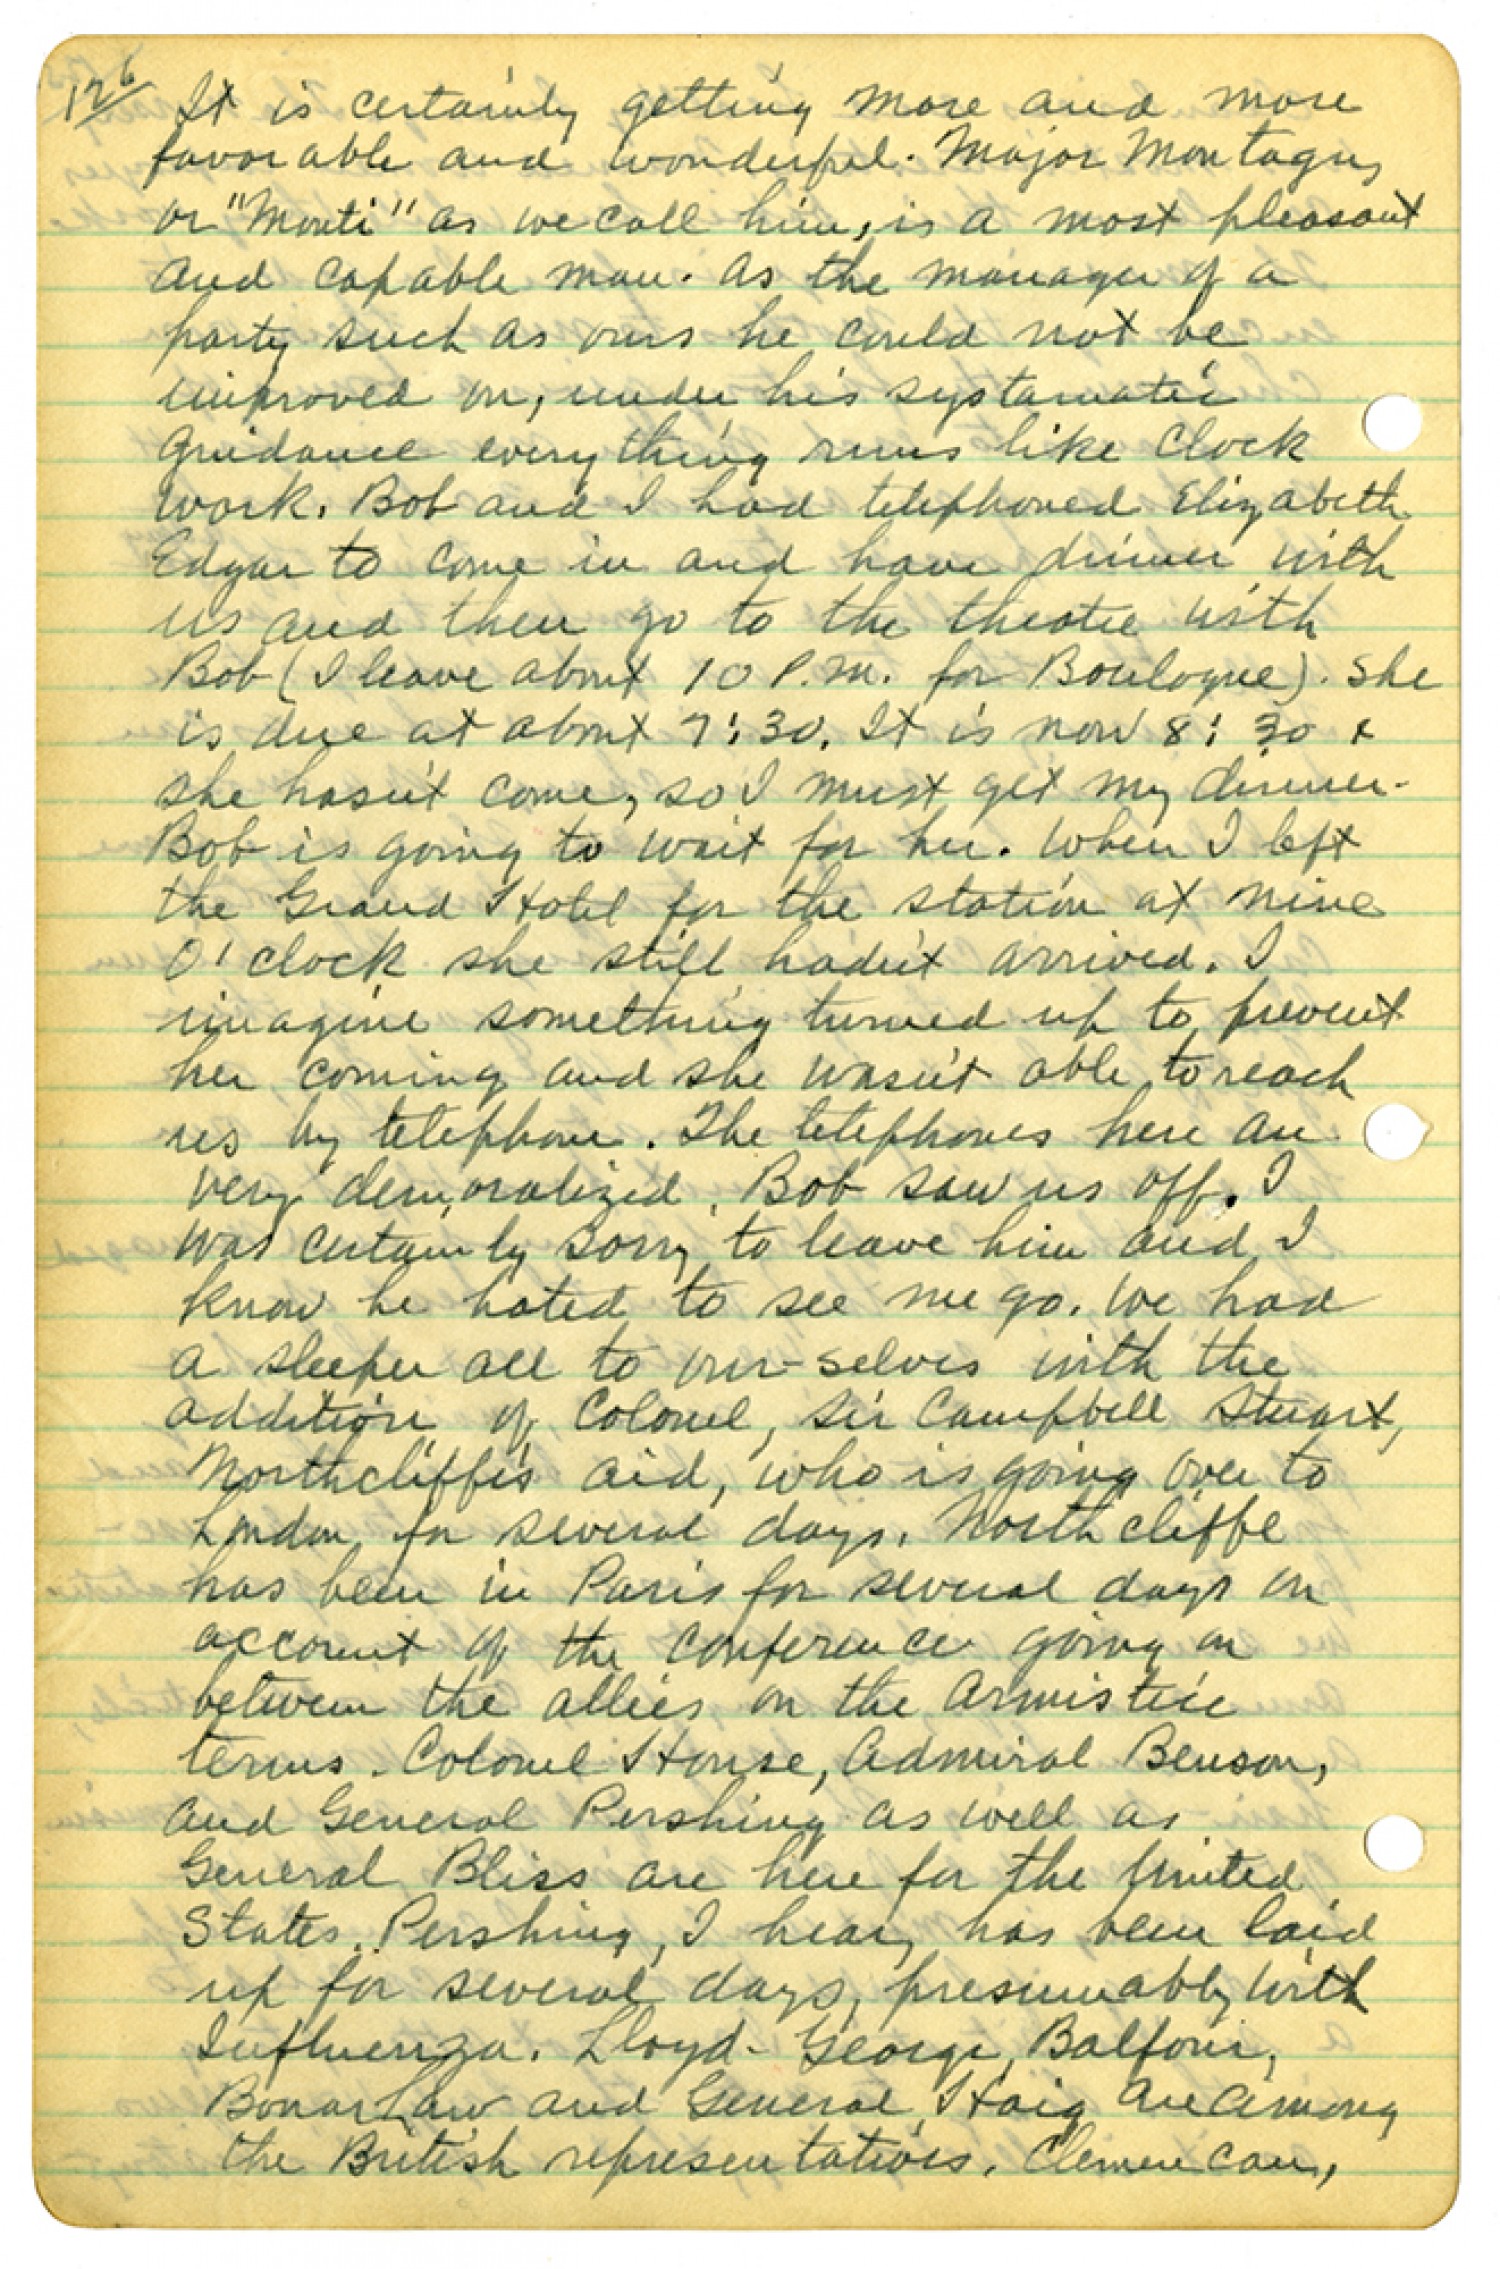 126
It is certainly getting more and more
favorable and wonderful. Major Montague,
or "Monti" as we call him, is a most pleasant
and capable man. As the manager of a
party such as ours he could not be
improved on, under his systamatic
guidance everything runs like clock
work. Bob and I had telephoned Elizabeth
Edgar to come in and have dinner with
us and then go to the theatre with
Bob (I leave about 10 P.M. for Boulogne). She
is due at about 7:30. It is now 8:30 +
she hasn't come, so I must get my dinner.
Bob is going to wait for her. When I left
the Grand Hotel for the station at nine
O'clock she still hadn't arrived. I
imagine something turned up to prevent
her coming and she wasn't able to reach
us by telephone. The telephones here are
very demoralized. Bob saw us off. I
was certainly sorry to leave him and I
know he hated to see me go. We had
a sleeper all to our-selves with the
addition of Colonel, Sir Campbell Stuart,
Northcliffe's aid, who is going over to
London for several days. Northcliffe
has been in Paris for several days on
account of the conference going on
between the allies on the Armistice
terms. Colonel House, Admiral Benson,
and General Pershing as well as
General Bliss are here for the United
States. Pershing, I hear, has been laid
up for several days, presumably with
Influenza. Lloyd-George, Balfour,
Bonar Law and General Haig are among
the British representatives. Clemencau,